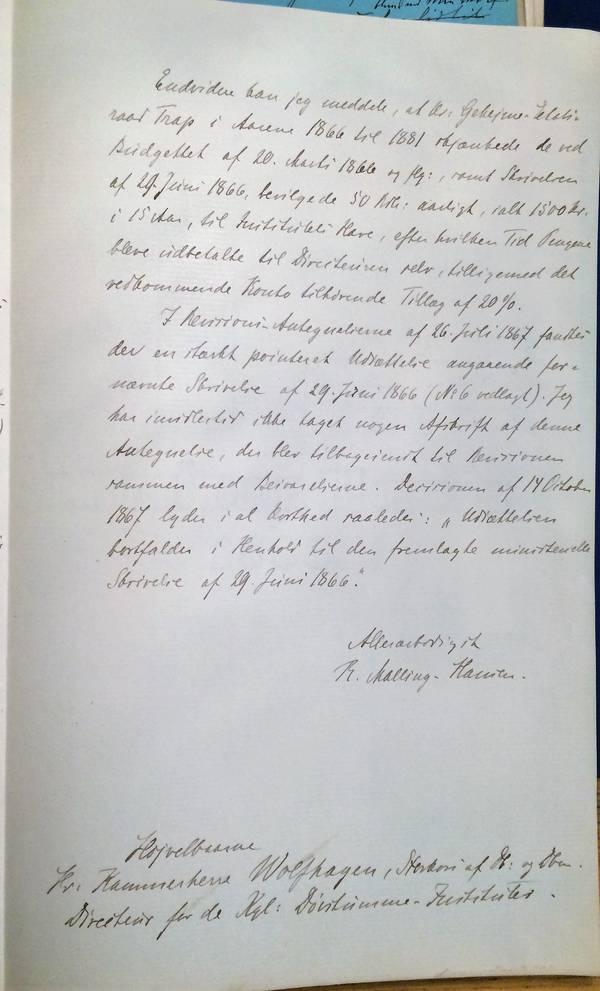 Endvidere kan jeg meddele, at Hr. Geheime-Etats-
raad Trap i Aarene 1866 til 1881 skjænkede de ved
Budgettet af 20. Marts 1866 og flg:, samt Skrivelsen
af 29. Juni 1866, bevilgede 50 Rdl: aarligt, ialt 1500 Kr.
i 15 Aar, til Institutets Have, efter hvilken Tid Pengene
bleve udbetalte til Directeuren selv, tilligemed det
vedkommende Konto tilhørende Tillæg af 20%.
I Revisions-Antegnelserne af 26. Juli 1867 fandtes
der en stærkt pointeret Udsættelse angaaende for-
nævnte Skrivelse af 29. Juni 1866 (No 6 vedlagt). Jeg
har imidlertid ikke taget nogen Afskrift af denne
Antegnelse, der blev tilbagesendt til Revisionen
sammen med Besvarelserne. Decisionen af 14 October
1867 lyder i al Korthed saaledes: „Udsættelsen
bortfalder i Henhold til den fremlagte ministerielle
Skrivelse af 29. Juni 1866".
Allerærbødigst
R. Malling-Hansen.
Højvelbaarne
Hr. Kammerherre Wolfhagen, Storkors af Db: og Dbm.
Directeur for de Kgl: Døvstumme-Instituter.